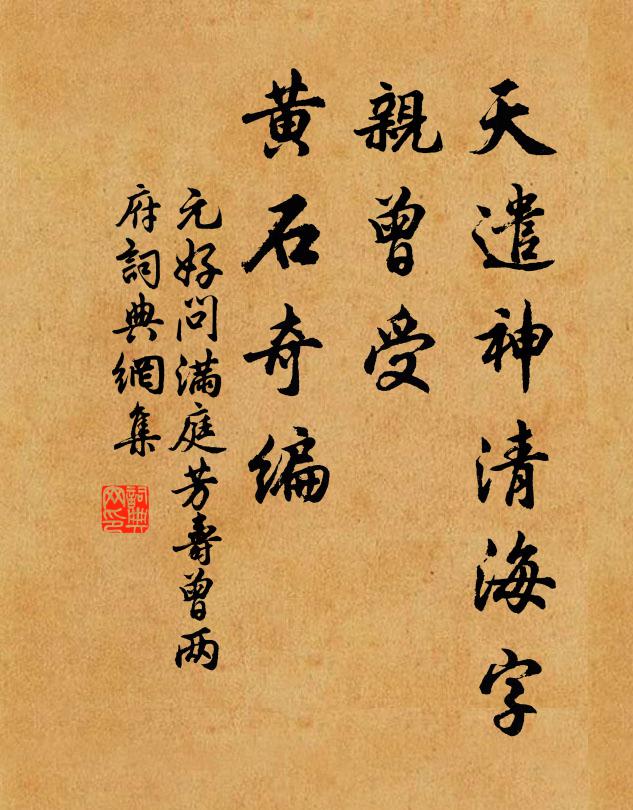 天遣神清海字
親曾受
黄石奇編
元好问满庭芳壽曾两
府詞典網集
詞典
网印